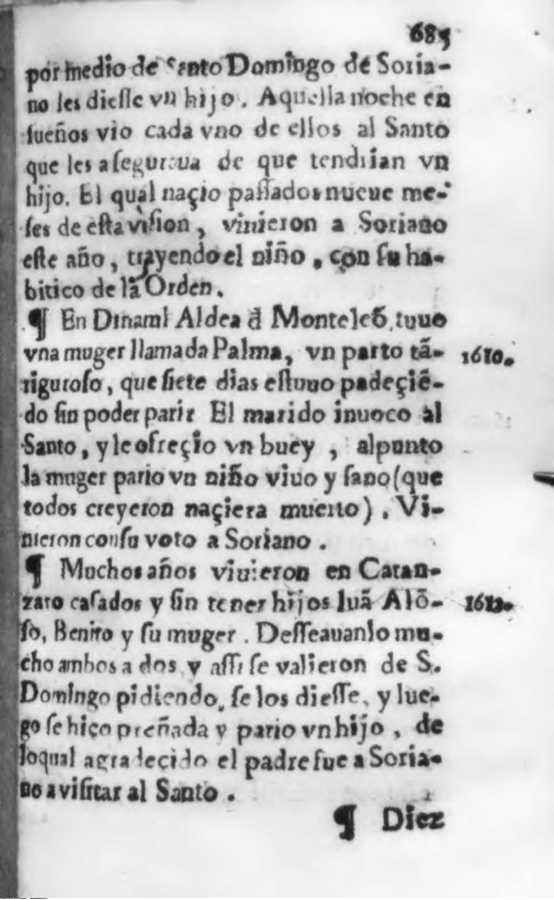 685
por medio de Santo Domingo de Soria-
no les diesse vn hijo. Aquella noche en
sueños vio cada vno de ellos al Santo
que les aseguraua de que tendrian vn
hijo. El qual naçio passados nueue me-
ses de esta vision, vinieron a Soriano
este año, trayendo el niño, con su ha-
bitico de la Orden.
¶ En Dinami Aldea đ Monteleõ, tuuo
vna muger llamada Palma, vn parto tã- 1610.
riguroso, que siete dias estuuo padeçiẽ-
do sin poder parir El marido inuoco al
Santo, y le ofreçio vn buey, al punto
la muger pario vn niño viuo y sano (que
todos creyeron naçiera muerto). Vi-
nieron con su voto a Soriano.
¶ Muchos años viuieron en Catan-
zaro casados y sin tener hijos Iuã Alõ-
so, Benito y su muger. Desseauanlo mu-
cho ambos a dos, y assi se valieron de S.
Domingo pidiendo, se los diesse, y lue-
go se hiço preñada y pario vn hijo, de
lo qual agradecido el padre fue a Soria-
no a visitar al Santo.
¶ Diez